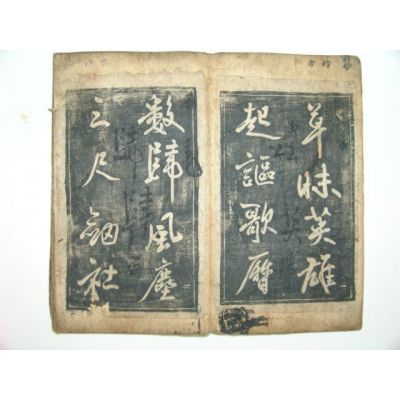 草昧英雄
起謳歌曆
數歸風塵
三尺劔社